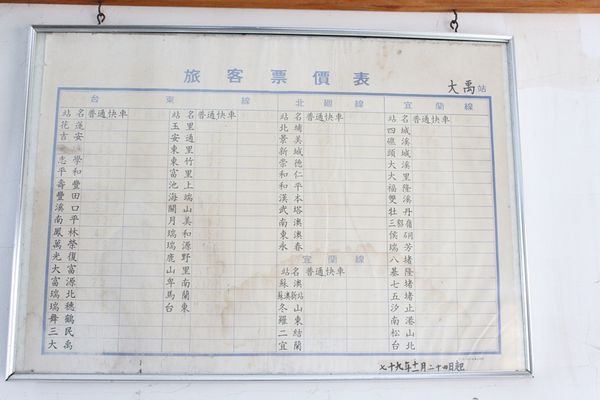 旅客票價表
大禹站
台東線
北迴線
宜蘭線
站名 普通 快車
花蓮
吉安
志學
平和
壽豐
豐田
溪口
南平
鳳林
萬榮
光復
大富
富源
瑞北
瑞穗
舞鶴
三民
大禹
站名 普通 快車
玉里
安通
東里
東竹
富里
池上
海端
關山
月美
瑞和
瑞源
鹿野
山里
卑南
馬蘭
台東
站名 普通 快車
北埔
景美
新城
崇德
和仁
和平
漢本
武塔
南澳
東澳
永春
宜蘭線
站名 普通 快車
蘇澳
蘇澳新站
冬山
羅東
二結
宜蘭
站名 普通 快車
四城
礁溪
頭城
大溪
大里
福隆
雙溪
牡丹
三貂嶺
侯硐
瑞芳
八堵
基隆
七堵
五堵
汐止
南港
松山
台北
七十九年十一月二十四日起